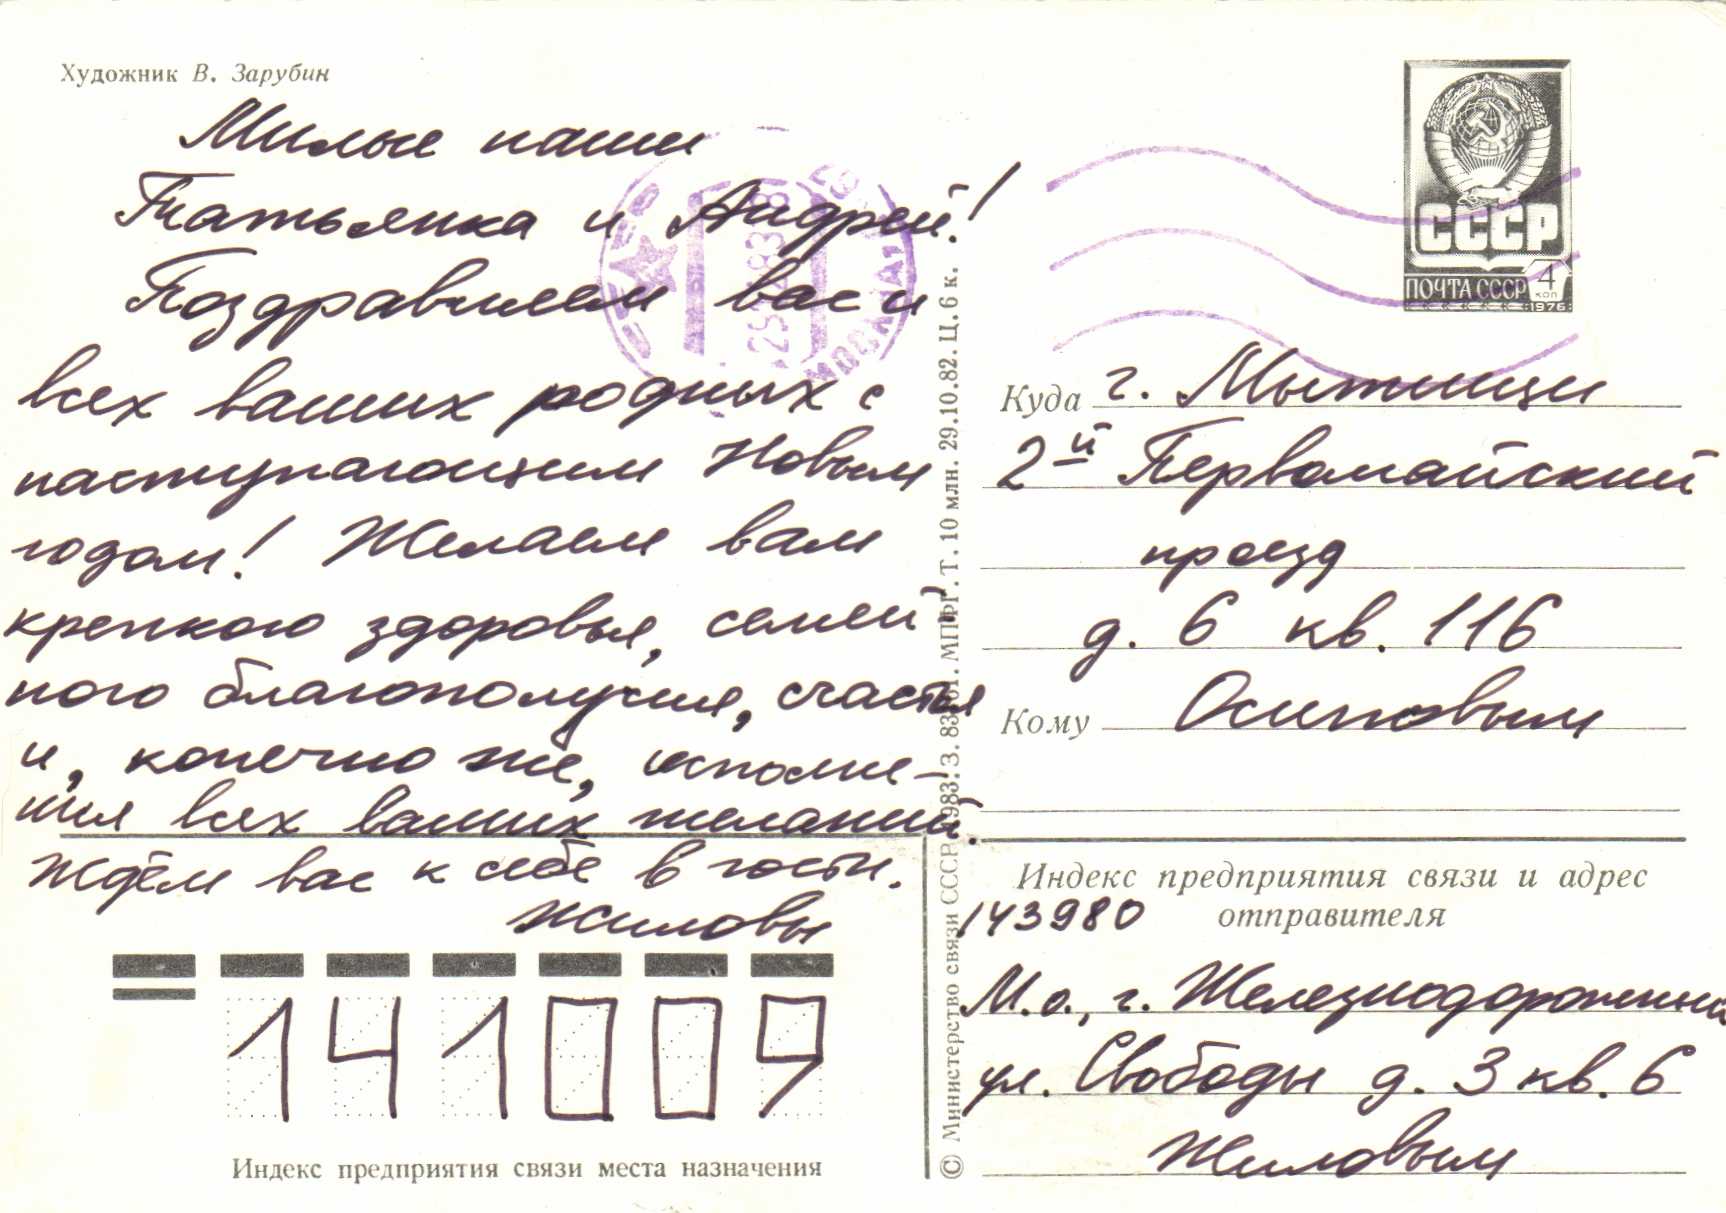 Художник В. Зарубин
Милые наши
Татьянка и Андрей!
Поздравляем вас и
всех ваших родных с
наступающим Новым
годом! Желаем вам
крепкого здоровья, семей
ного благополучия, счастья
и, конечно же, исполне-
ния всех ваших желаний.
Ждём вас к себе в гости.
Жиловы
141009
Индекс предприятия связи места назначения
© Министерство связи СССР. 1983. З. 83 МПФГ. Т. 10 млн. 29.10.82. Ц. 6 к.
СССР
ПОЧТА СССР 4 коп
1976
МОСКВА
Куда г. Мытищи
2й Первомайский
проезд
д. 6 кв. 116
Кому Осиповым
Индекс предприятия связи и адрес
143980 отправителя
М.о., г. Железнодорожный
ул. Свободы д. 3 кв. 6
Жиловым